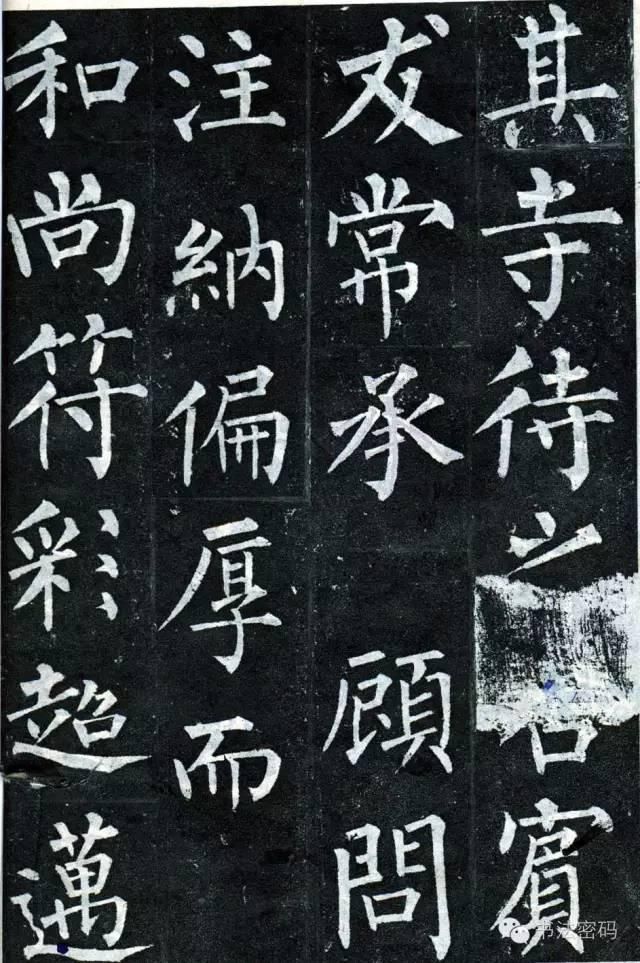 其寺待之賓
友常承顧問
注納偏厚而
和尚符彩超邁
书法密码